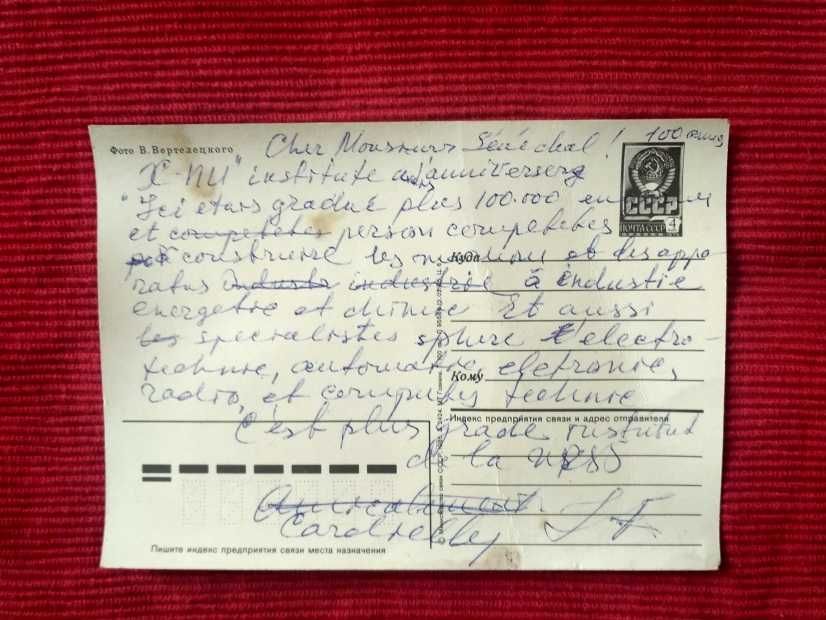 Фото В. Вертелецкого
Cher Monsieur Sénéchal! 100
"Х-ПИ" institute anniverserg
"Ici etais graduè plus 100.000
et competebes person competebes
construire les et des appa-
ratus industr industrie à industie
energetic et chimic Et aussi
les specialistes sphere electro-
technic, automatic, eletronic,
radio, et computes technic
C'est plus grade institut
de la URSS
Amicalement.
Cardielly
ПОЧТА СССР
4
Куда
Кому
Индекс предприятия связи и адрес отправителя
Пишите индекс предприятия связи места назначения